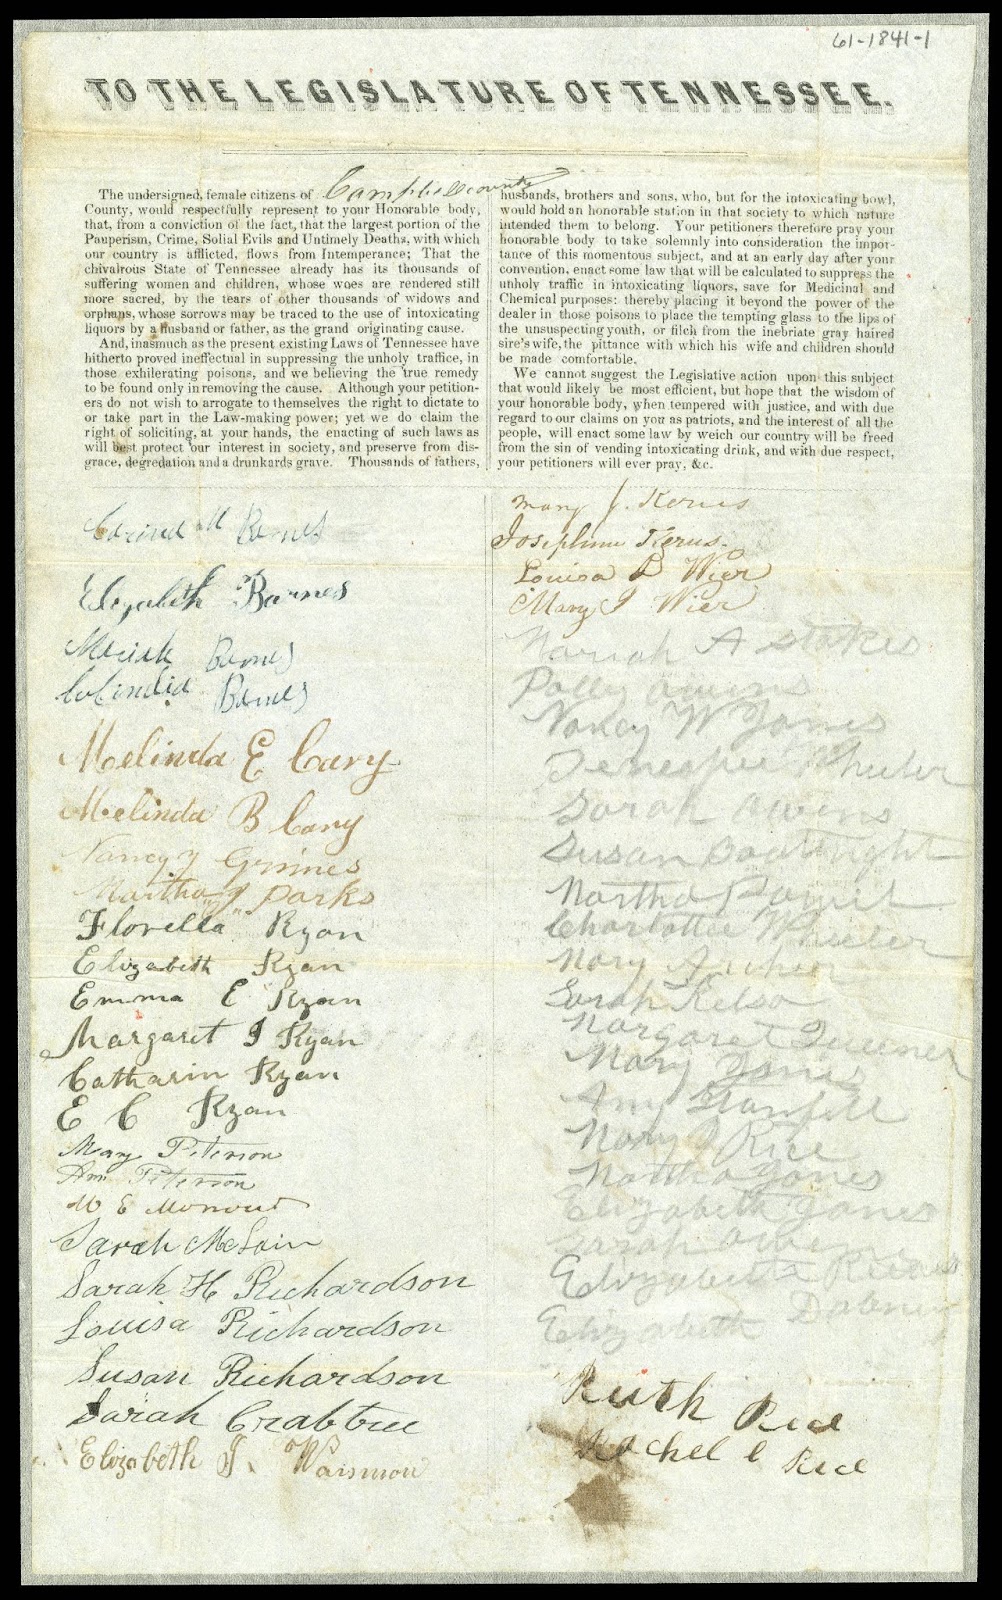 61-1841-1
TO THE LEGISLATURE OF TENNESSEE.
The undersigned, female citizens of Campbell county
County, would respectfully represent to your Honorable body,
that, from a conviction of the fact, that the largest portion of the
Pauperism, Crime, Solial Evils and Untimely Deaths, with which
our country is afflicted, flows from Intemperance; That the
chivalrous State of Tennessee already has its thousands of
suffering women and children, whose woes are rendered still
more sacred, by the tears of other thousands of widows and
orphans, whose sorrows may be traced to the use of intoxicating
liquors by a husband or father, as the grand originating cause.
And, inasmuch as the present existing Laws of Tennessee have
hitherto proved ineffectual in suppressing the unholy traffic, in
those exhilerating poisons, and we believing the true remedy
to be found only in removing the cause. Although your petition-
ers do not wish to arrogate to themselves the right to dictate to
or take part in the Law-making power; yet we do claim the
right of soliciting, at your hands, the enacting of such laws as
will best protect our interest in society, and preserve from dis-
grace, degredation and a drunkards grave. Thousands of fathers,
husbands, brothers and sons, who, but for the intoxicating bowl,
would hold an honorable station in that society to which nature
intended them to belong. Your petitioners therefore pray your
honorable body to take solemnly into consideration the impor-
tance of this momentous subject, and at an early day after your
convention, enact some law that will be calculated to suppress the
unholy traffic in intoxicating liquors, save for Medicinal and
Chemical purposes: thereby placing it beyond the power of the
dealer in those poisons to place the tempting glass to the lips of
the unsuspecting youth, or filch from the inebriate gray haired
sire's wife, the pittance with which his wife and children should
be made comfortable.
We cannot suggest the Legislative action upon this subject
that would likely be most efficient, but hope that the wisdom of
your honorable body, when tempered with justice, and with due
regard to our claims on you as patriots, and the interest of all the
people, will enact some law by weich our country will be freed
from the sin of vending intoxicating drink, and with due respect,
your petitioners will ever pray, &c.
Barnes
Elizabeth Barnes
Mariah Barnes
Barnes
Melinda E Cary
Melinda B Cary
Nancy Y Grimes
Martha J Parks
Florella Ryan
Elizabeth Ryan
Emma E Ryan
Margaret J Ryan
Catharin Ryan
E C Ryan
Mary Peterson
Ann Peterson
M E
Sarah McLain
Sarah H Richardson
Louisa Richardson
Susan Richardson
Sarah Crabtree
Elizabeth J.
Mary J. Kerus
Josephine Kerus
Louisa D Wier
Mary J Wier
Mariah A Stokes
Polly Owens
Nancy W Jones
Wheeler
Sarah Owens
Susan Boatright
Martha
Charlottee Wheeler
Mary Archer
Sarah Kelso
Margaret Queener
Mary Jones
Amy Stanfill
Mary J Rice
Martha Jones
Elizabeth Jones
Sarah Owens
Elizabeth
Elizabeth Dabney
Ruth Rice
Rachel C Rice